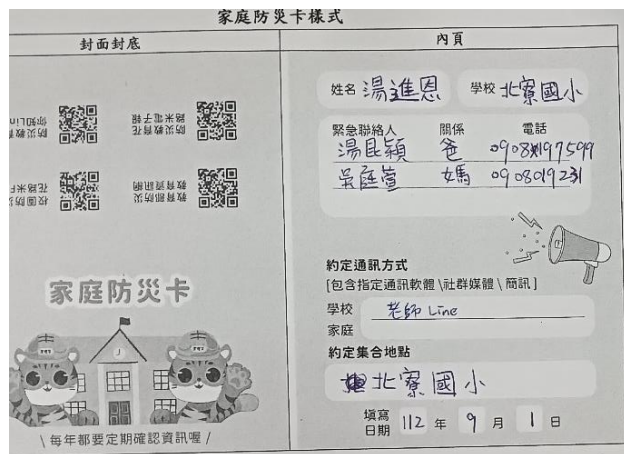 家庭防災卡樣式
封面封底
內頁
防災教育花路米電子報
教育部防災教育資訊網
家庭防災卡
\ 每年都要定期確認資訊喔 /
姓名 湯進恩
學校 北寮國小
緊急聯絡人 關係 電話
湯昆穎 爸
吳庭萱 媽 0908019231
約定通訊方式
[包含指定通訊軟體\社群媒體\簡訊]
學校 老師Line
家庭
約定集合地點
北寮國小
填寫日期 112 年 9 月 1 日